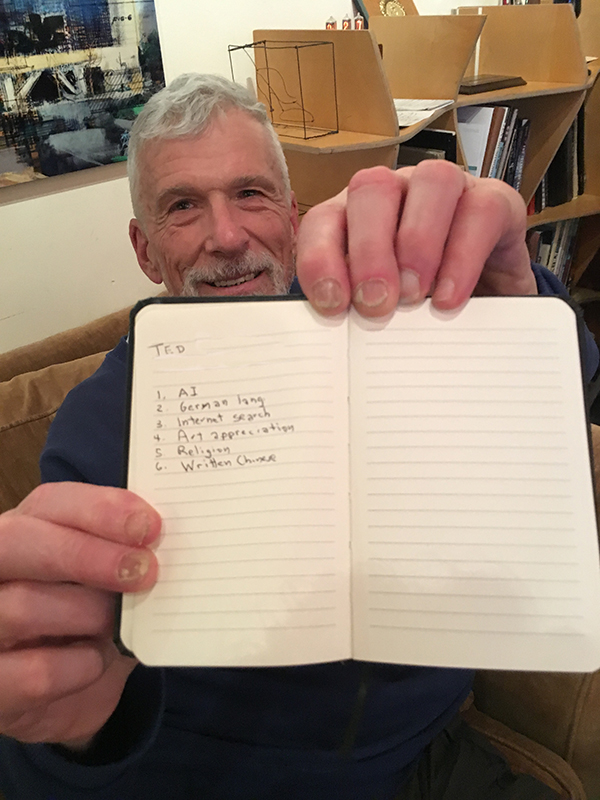 TED
1. AI
2. German lang
3. Internet search
4. Art appreciation
5. Religion
6. Written Chinese